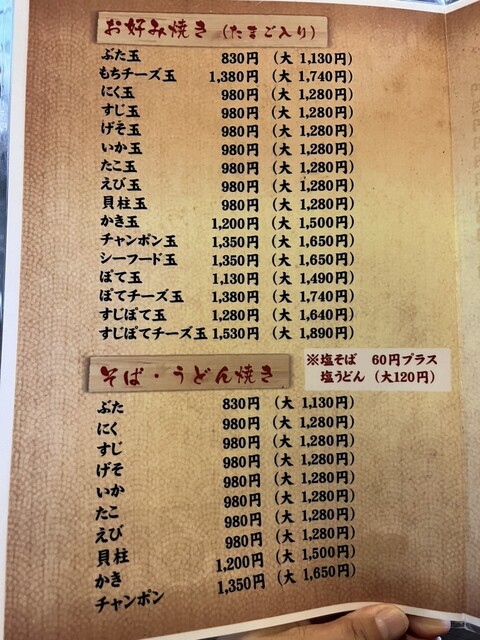 お好み焼き (たまご入り)
ぶた玉 830円 (大 1,130円)
もちチーズ玉 1,380円 (大 1,740円)
にく玉 980円 (大 1,280円)
すじ玉 980円 (大 1,280円)
げそ玉 980円 (大 1,280円)
いか玉 980円 (大 1,280円)
たこ玉 980円 (大 1,280円)
えび玉 980円 (大 1,280円)
貝柱玉 980円 (大 1,280円)
かき玉 1,200円 (大 1,500円)
チャンポン玉 1,350円 (大 1,650円)
シーフード玉 1,350円 (大 1,650円)
ぽて玉 1,130円 (大 1,490円)
ぽてチーズ玉 1,380円 (大 1,740円)
すじぽて玉 1,280円 (大 1,640円)
すじぽてチーズ玉 1,530円 (大 1,890円)
そば・うどん焼き
※塩そば 60円プラス
塩うどん (大120円)
ぶた 830円 (大 1,130円)
にく 980円 (大 1,280円)
すじ 980円 (大 1,280円)
げそ 980円 (大 1,280円)
いか 980円 (大 1,280円)
たこ 980円 (大 1,280円)
えび 980円 (大 1,280円)
貝柱 980円 (大 1,280円)
かき 1,200円 (大 1,500円)
チャンポン 1,350円 (大 1,650円)